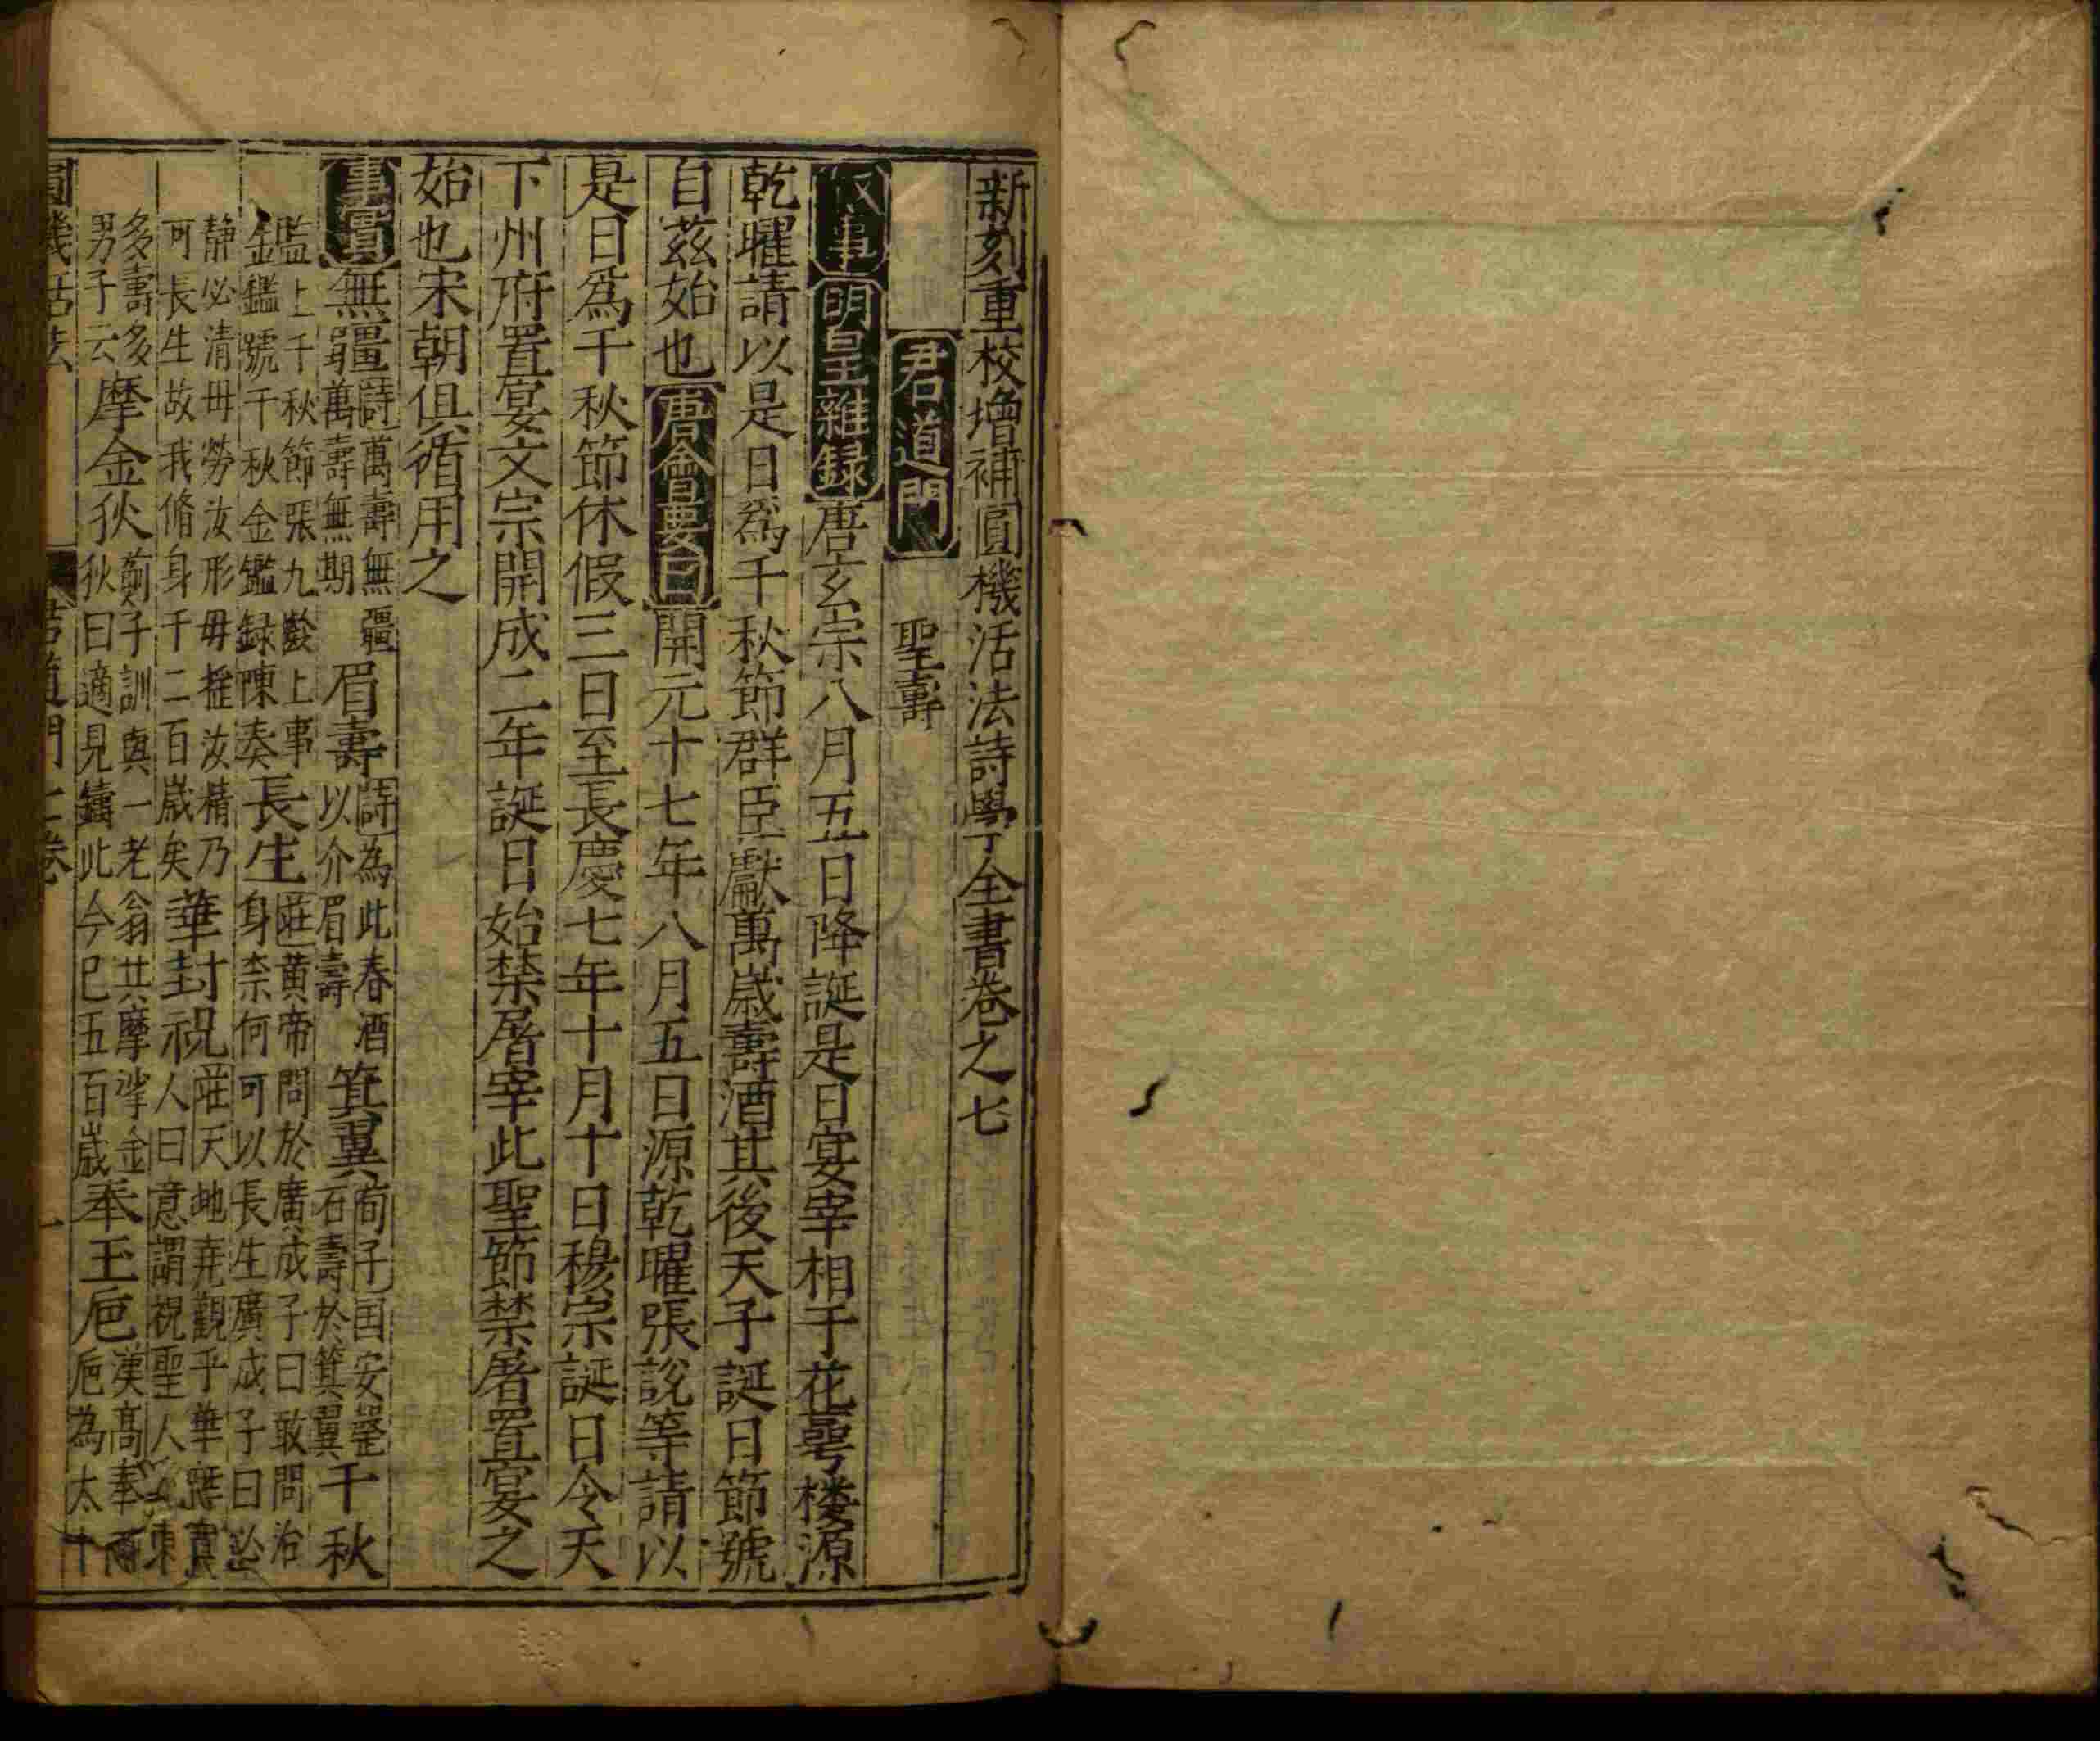 新刻重校增補圓機活法詩學全書卷之七
君道門 聖壽
事 明皇雜録 唐玄宗八月五日降誕是日宴宰相于花萼楼源
乾曜請以是日爲千秋節群臣獻萬歲壽酒其後天子誕日節號
自茲始也 唐會要曰 開元十七年八月五日源乾曜張說等請以
是日爲千秋節休假三日至長慶七年十月十日穆宗誕日令天
下州府置宴文宗開成二年誕日始禁屠宰此聖節禁屠置宴之
始也宋朝俱循用之
事實 無疆 詩萬壽無疆
萬壽無期 眉壽 詩為此春酒
以介眉壽 箕翼 荀子国安罄
石壽於箕翼 千秋
監上千秋節張九齡上事
金鑑號千秋金鑑録陳奏 長生 莊黄帝問於廣成子曰敢問治
身柰何可以長生廣成子曰必
静必清毋勞汝形毋摇汝精乃
可長生故我脩身千二百歲矣 華封祝 莊天地尭觀乎華
人曰意謂祝聖人
多壽多
男子云 摩金狄 薊子訓與一老翁共摩挲金
狄曰適見鑄此今已五百歲 奉玉巵 漢高奉
巵為太